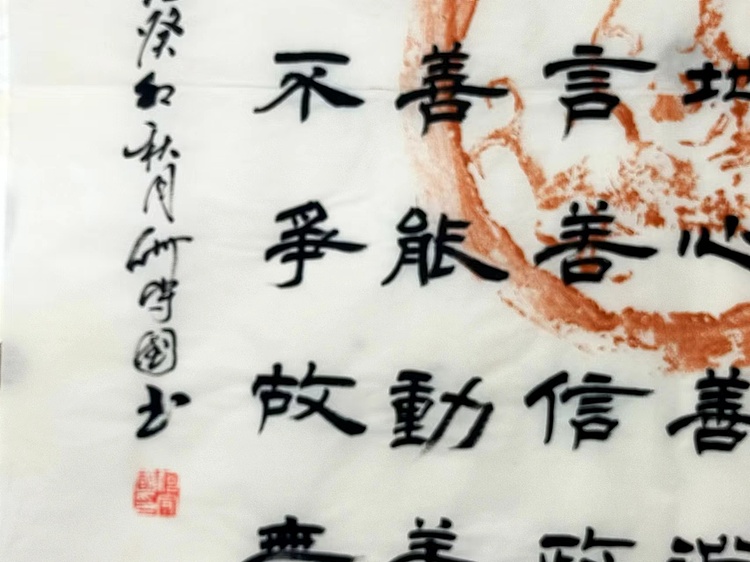 地心善淵
言善信政
善能動善
不爭故無
癸卯秋月
書